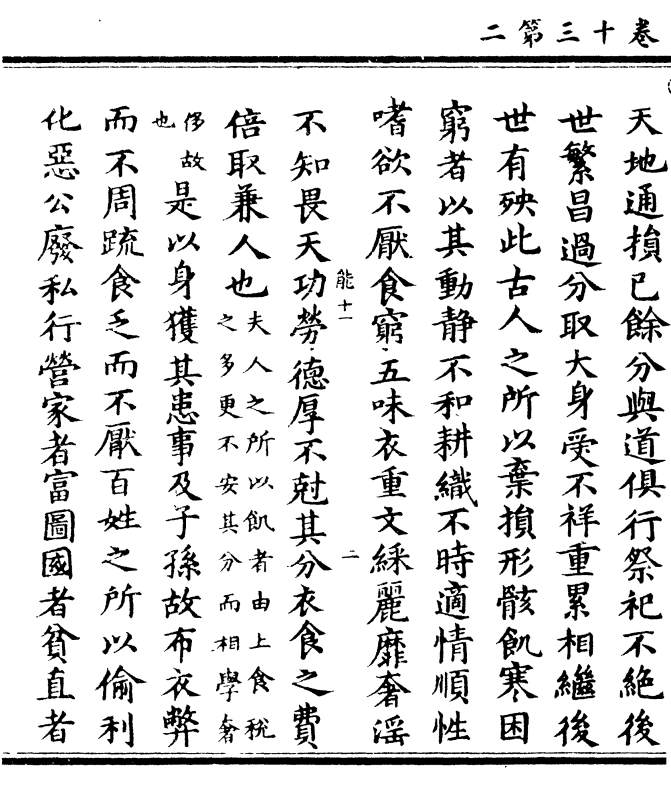 卷十三第二
天地通損已餘分與道俱行祭祀不絶後
世繁昌過分取大身受不祥重累相繼後
世有殃此古人之所以棄損形骸飢寒困
窮者以其動静不和耕織不時適情順性
嗜欲不厭食窮五味衣重文綵麗靡奢淫
能十一
二
不知畏天功勞德厚不尅其分衣食之費
倍取兼人也夫人之所以飢者由上食稅
之多更不安其分而相學奢
侈故
也
是以身獲其患事及子孫故布衣弊
而不周疏食乏而不厭百姓之所以偷利
化惡公廢私行營家者富圖國者貧直者